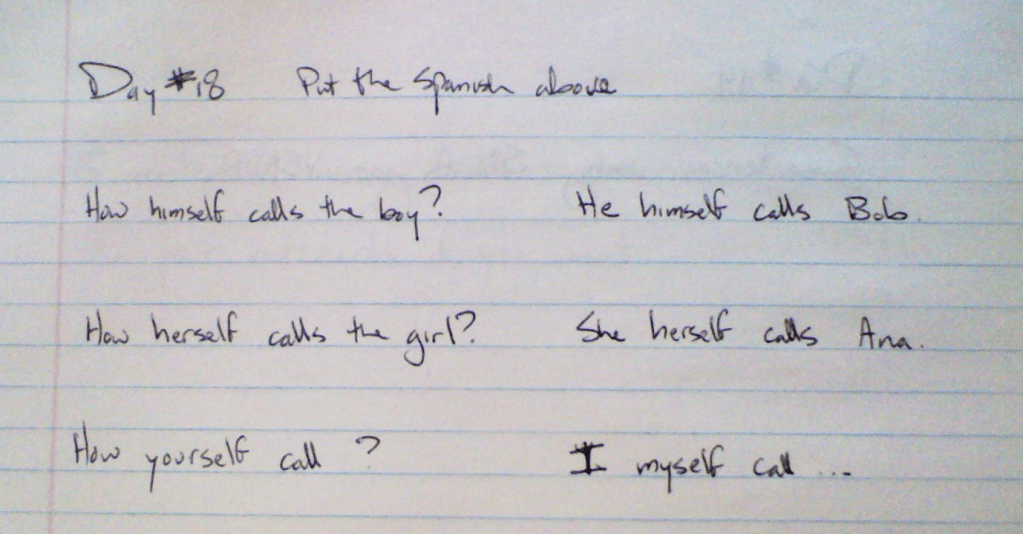 Day #18 Put the Spanish above
How himself calls the boy? He himself calls Bob.
How herself calls the girl? She herself calls Ana.
How yourself call ? I myself call ...